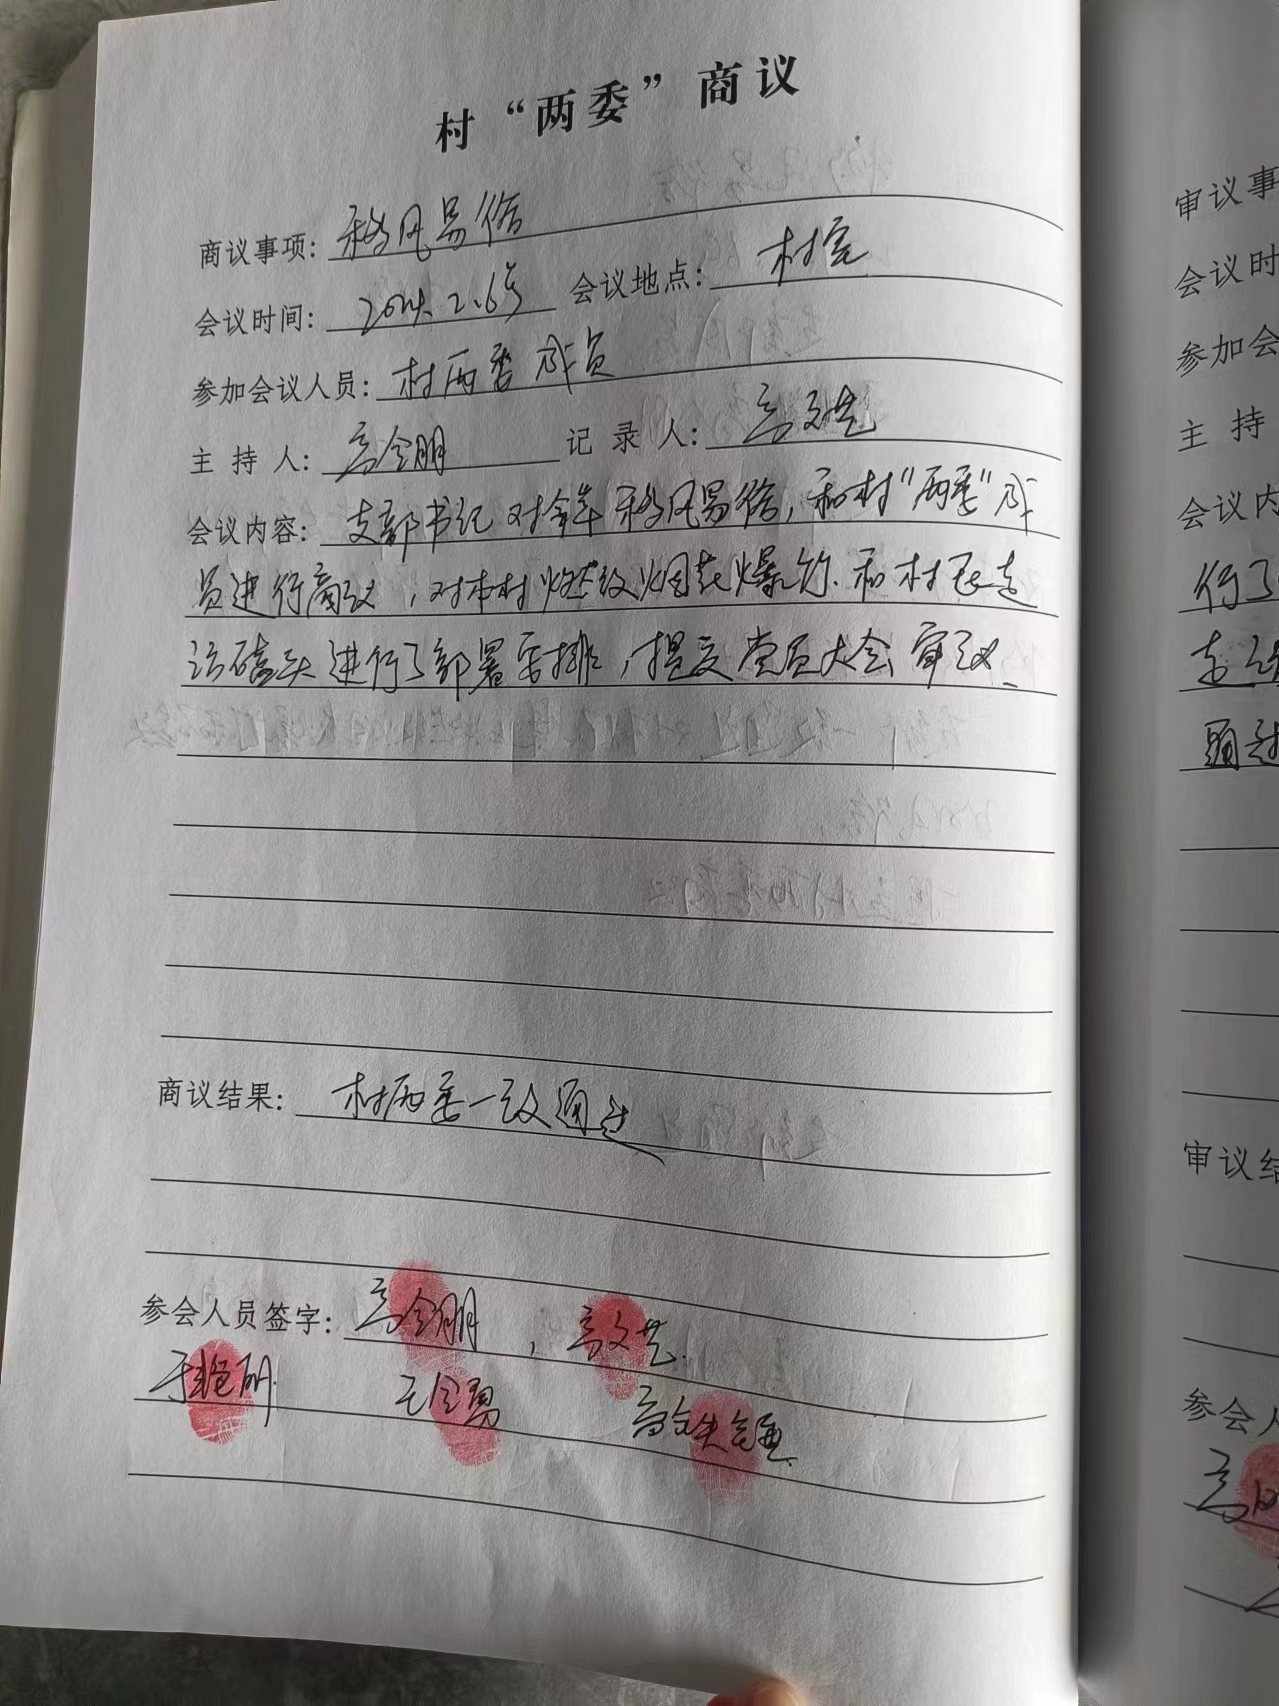 村“两委”商议
商议事项：移风易俗
会议时间：2024.2.6号 会议地点：村室
参加会议人员：村两委成员
主持人：高会朋 记录人：高文艺
会议内容：支部书记对今年移风易俗，和村“两委”成
员进行商议，对本村燃放烟花爆竹、和村民走
访磕头进行了部署安排，提交党员大会审议、
商议结果：村两委一致通过
参会人员签字：高会朋，高文艺.
于艳丽. 高铁
审议事
会议时
参加会
主持
会议内
行了
通过
审议结
参会人
高